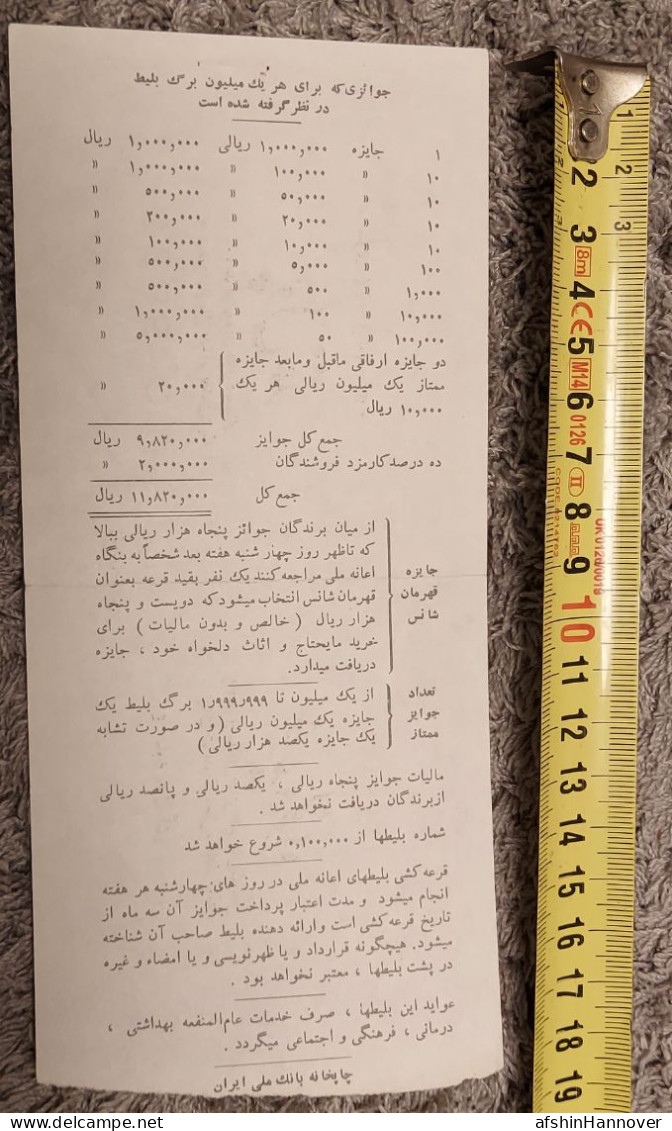 جوائزی که برای هر یک میلیون برگ بلیط
در نظر گرفته شده است
۱ جایزه ۱٫۰۰۰٫۰۰۰ ریالی ۱٫۰۰۰٫۰۰۰ ریال
۱۰ « ۱۰۰٫۰۰۰ « ۱٫۰۰۰٫۰۰۰ «
۱۰ « ۵۰٫۰۰۰ « ۵۰۰٫۰۰۰ «
۱۰ « ۲۰٫۰۰۰ « ۲۰۰٫۰۰۰ «
۱۰ « ۱۰٫۰۰۰ « ۱۰۰٫۰۰۰ «
۱۰۰ « ۵٫۰۰۰ « ۵۰۰٫۰۰۰ «
۱٫۰۰۰ « ۵۰۰ « ۵۰۰٫۰۰۰ «
۱۰٫۰۰۰ « ۱۰۰ « ۱٫۰۰۰٫۰۰۰ «
۱۰۰٫۰۰۰ « ۵۰ « ۵٫۰۰۰٫۰۰۰ «
دو جایزه ارفاقی ماقبل و مابعد جایزه
ممتاز یک میلیون ریالی هر یک ۲۰٫۰۰۰ «
۱۰٫۰۰۰ ریال
جمع کل جوایز ۹٫۸۲۰٫۰۰۰ ریال
ده درصد کارمزد فروشندگان ۲٫۰۰۰٫۰۰۰ «
جمع کل ۱۱٫۸۲۰٫۰۰۰ ریال
جایزه
قهرمان
شانس
از میان برندگان جوائز پنجاه هزار ریالی ببالا
که تاظهر روز چهار شنبه هفته بعد شخصاً به بنگاه
اعانه ملی مراجعه کنند یک نفر بقید قرعه بعنوان
قهرمان شانس انتخاب میشود که دویست و پنجاه
هزار ریال ( خالص و بدون مالیات ) برای
خرید مایحتاج و اثاث دلخواه خود ، جایزه
دریافت میدارد.
تعداد
جوایز
ممتاز
از یک میلیون تا ۱٫۹۹۹٫۹۹۹ برگ بلیط یک
جایزه یک میلیون ریالی ( و در صورت تشابه
یک جایزه یکصد هزار ریالی )
مالیات جوایز پنجاه ریالی ، یکصد ریالی و پانصد ریالی
از برندگان دریافت نخواهد شد .
شماره بلیطها از ۰٫۱۰۰٫۰۰۰ شروع خواهد شد
قرعه کشی بلیطهای اعانه ملی در روز های چهارشنبه هر هفته
انجام میشود و مدت اعتبار پرداخت جوایز آن سه ماه از
تاریخ قرعه کشی است و ارائه دهنده بلیط صاحب آن شناخته
میشود. هیچگونه قرارداد و یا ظهرنویسی و یا امضاء و غیره
در پشت بلیطها ، معتبر نخواهد بود .
عواید این بلیطها ، صرف خدمات عام المنفعه بهداشتی ،
درمانی ، فرهنگی و اجتماعی میگردد .
چاپخانه بانک ملی ایران
1
2
3
2
3
8m
4
CE
5
M14
6
0126
7
II
8
9
10
11
12
13
14
15
16
17
18
19
delcampe.net
afshinHannover